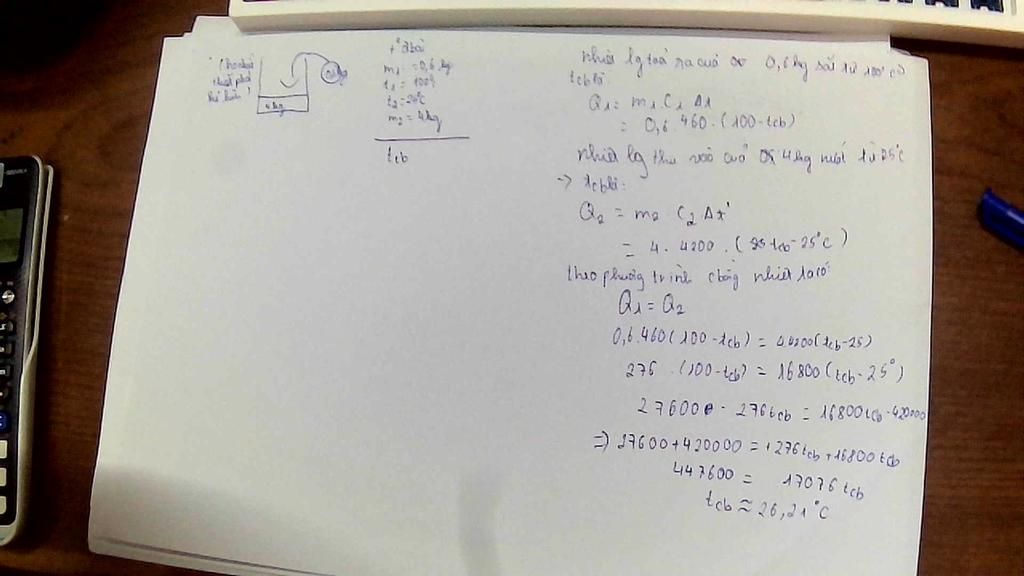 4 kg
t° đbài
m₁ = 0,6 kg
t₁ = 100°
t₂ = 25°C
m₂ = 4kg
t cb
nhiệt lg toả ra của 0,6 kg sắt từ 100°C
t cb là:
Q₁ = m₁.C₁ Δt
= 0,6.460.(100-tcb)
nhiệt lg thu vào của 4kg nước từ 25°C
-> tcb là:
Q₂ = m₂ C₂ Δt'
= 4.4200.(tcb-25°C)
theo phương trình cbằng nhiệt ta có:
Q₁ = Q₂
0,6.460(100-tcb) = 4.4200(tcb-25)
276.(100-tcb) = 16800(tcb-25°)
27600 - 276tcb = 16800tcb-420000
=> 27600+420000 = +276tcb+16800tcb
447600 = 17076 tcb
tcb ≈ 26,21°C